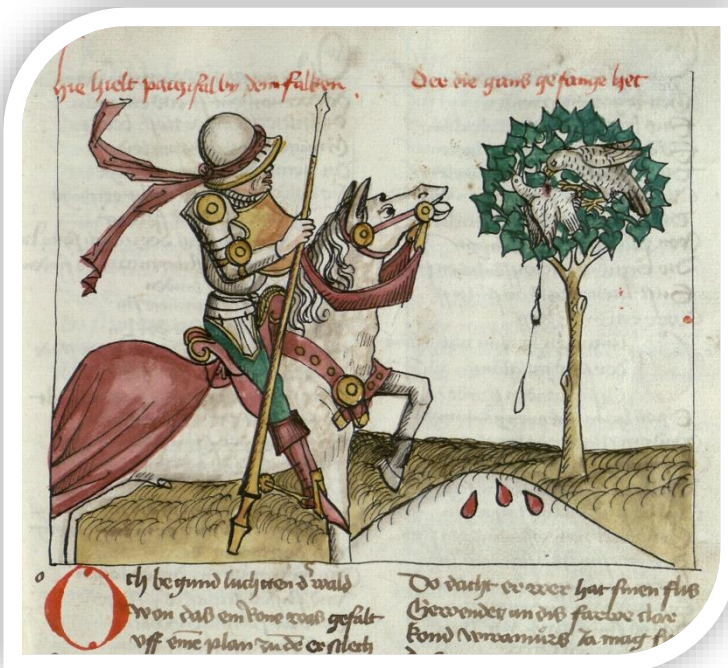 Hie hielt partzifal by dem falken. Der die gans gefange het
O
ch begund luchtten d wald
Won das ein rone was gefalt
Vff eine plan zu de er slech
Do dacht er wer hat sinen flis
Gewendet an dis farwe clar
kond wiramurs Ja mag